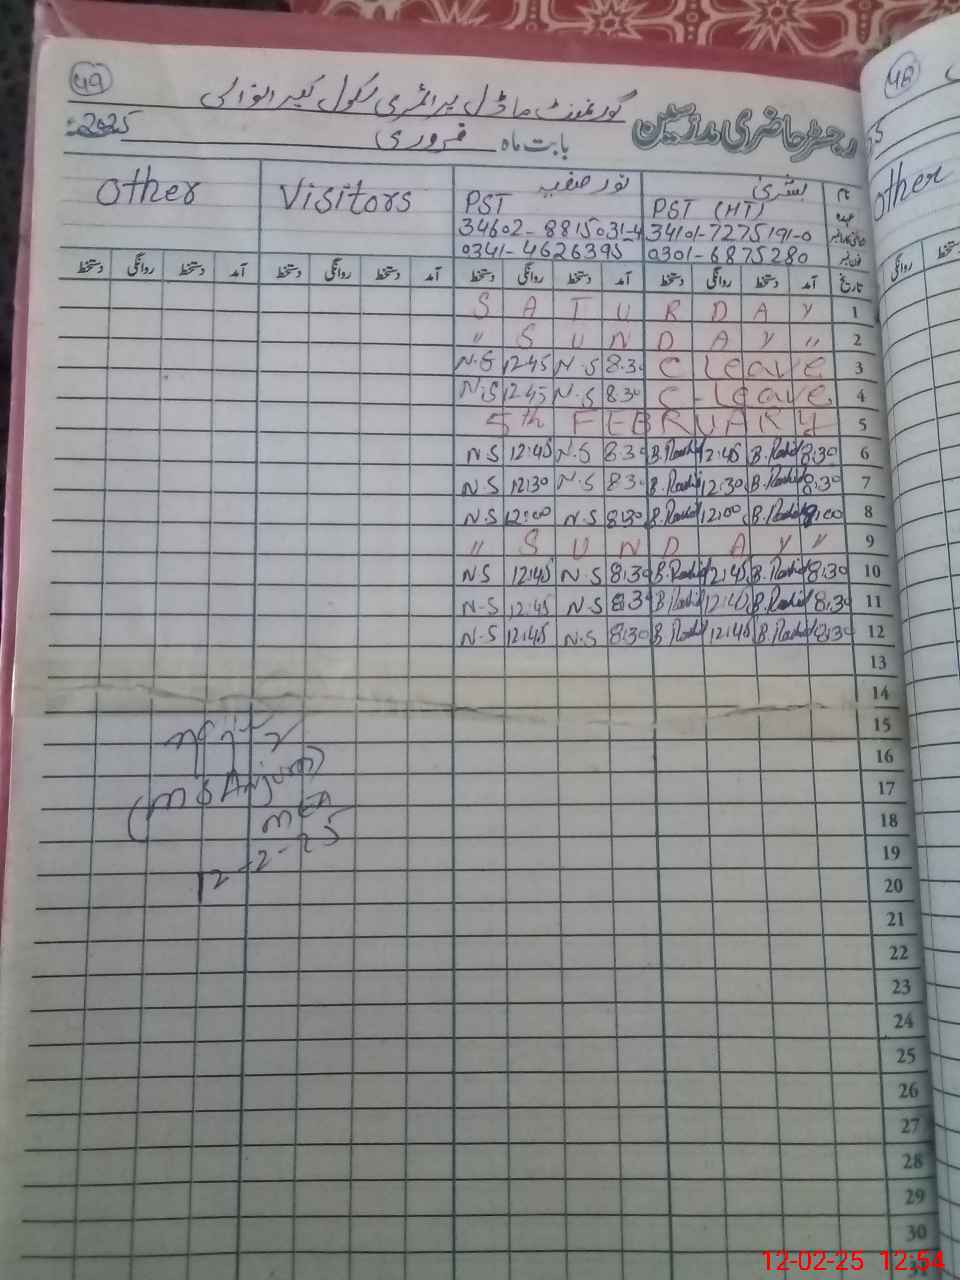 49
گورنمنٹ ماڈل پرائمری سکول
رجسٹر حاضری مدرسین
بابت ماہ فروری 2025
Other Visitors نور صفیہ بشریٰ نام
PST PST (HT) عہدہ
34602-8815031-4 34101-7275191-0
0341-4626395 0301-6875280 فون نمبر
دستخط روانگی دستخط آمد دستخط روانگی دستخط آمد دستخط روانگی دستخط آمد دستخط روانگی دستخط آمد تاریخ
S A T U R D A Y 1
" S U N D A Y " 2
N.S 12:45 N.S 8:30 C Leave 3
N.S 12:45 N.S 8:30 C-Leave 4
5th FEBRUARY 5
N.S 12:45 N.S 8:30 B.Rashid 12:45 B.Rashid 8:30 6
N.S 12:30 N.S 8:30 B.Rashid 12:30 B.Rashid 8:30 7
N.S 12:00 N.S 8:30 B.Rashid 12:00 B.Rashid 8:00 8
" S U N D A Y " 9
N S 12:45 N.S 8:30 B.Rashid 12:45 B.Rashid 8:30 10
N-S 12:45 N.S 8:30 B.Rashid 12:45 B.Rashid 8:30 11
N.S 12:45 N.S 8:30 B.Rashid 12:45 B.Rashid 8:30 12
13
14
15
16
17
18
19
20
21
22
23
24
25
26
27
28
29
30
(M S Anjum)
MEA
12-2-25
48
other
روانگی
12-02-25 12:54